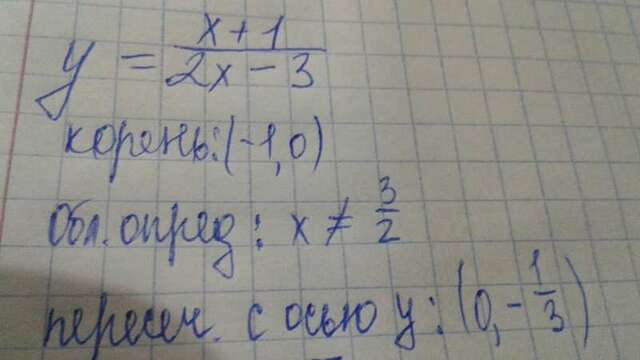 y = x + 1 / 2x - 3
корень: (-1, 0)
Обл. опред: x ≠ 3/2
пересеч. с осью y: (0, -1/3)